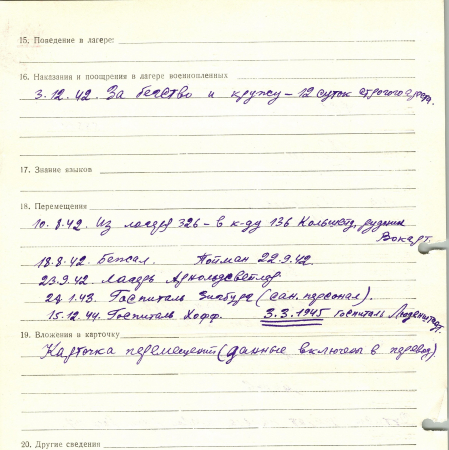 15. Поведение в лагере:
16. Наказания и поощрения в лагере военнопленных
3.12.42. За бегство и кражу – 12 суток строгого
17. Знание языков
18. Перемещения
10.8.42. Из лагеря 326 – в к-ду 136 рудник
18.8.42 Бежал. Пойман 22.9.42.
23.9.42 Лагерь
1.43. Госпиталь (сан. персонал).
15.12.44. Госпиталь Хофф. 3.3.1945 госпиталь
19. Вложения в карточку
Карточка перемещений (данные включены в перевод)
20. Другие сведения